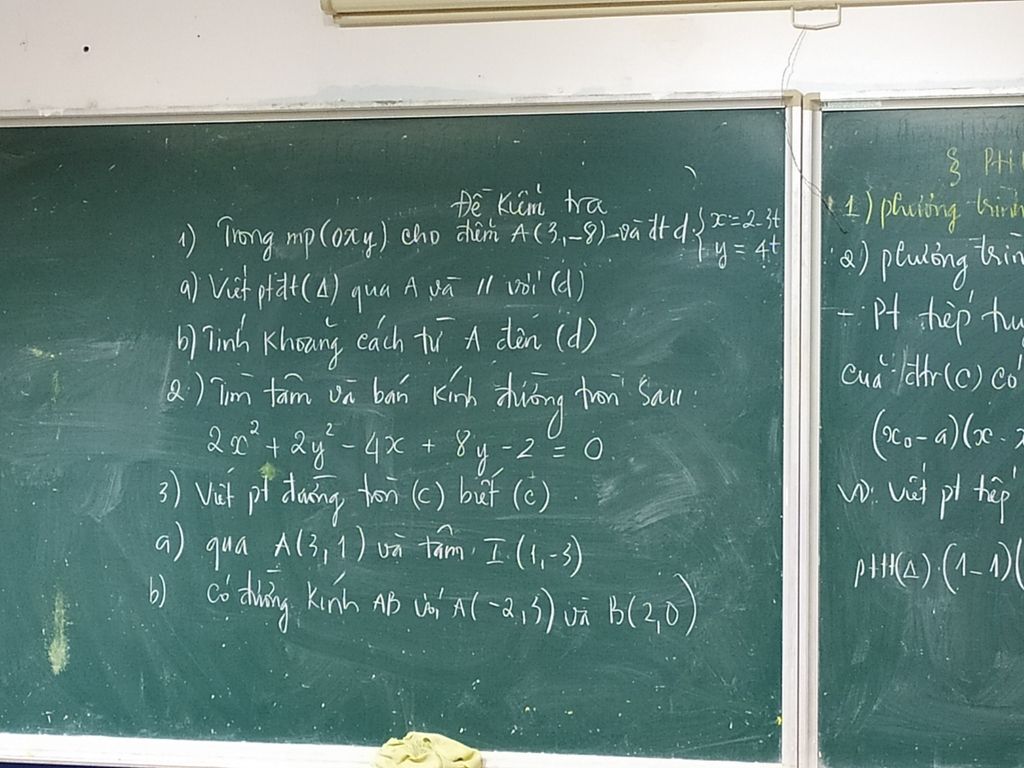 Đề kiểm tra
1) Trong mp(Oxy) cho điểm A(3,-8) và đt d { x=2-3t
y = 4t
a) Viết ptđt(Δ) qua A và // với (d)
b) Tính khoảng cách từ A đến (d)
2) Tìm tâm và bán kính đường tròn sau:
2x² + 2y² - 4x + 8y - 2 = 0.
3) Viết pt đường tròn (C) biết (C)
a) qua A(3,1) và tâm I(1,-3)
b) Có đường kính AB với A(-2,3) và B(2,0)
§ PH
1) phương trình
2) phương trình
- Pt tiếp
của đtr(C) có
(x₀ - a)(x -
VD: Viết pt tiếp
ptt(Δ) (1-1)(